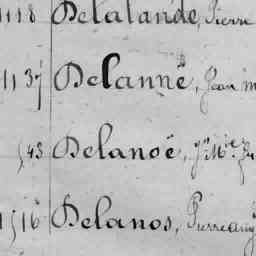 1118 Delalande, Pierre
1137 Delanné, Jean M
543 Delanoë, Jn Mie
1516 Delanos, Pierre